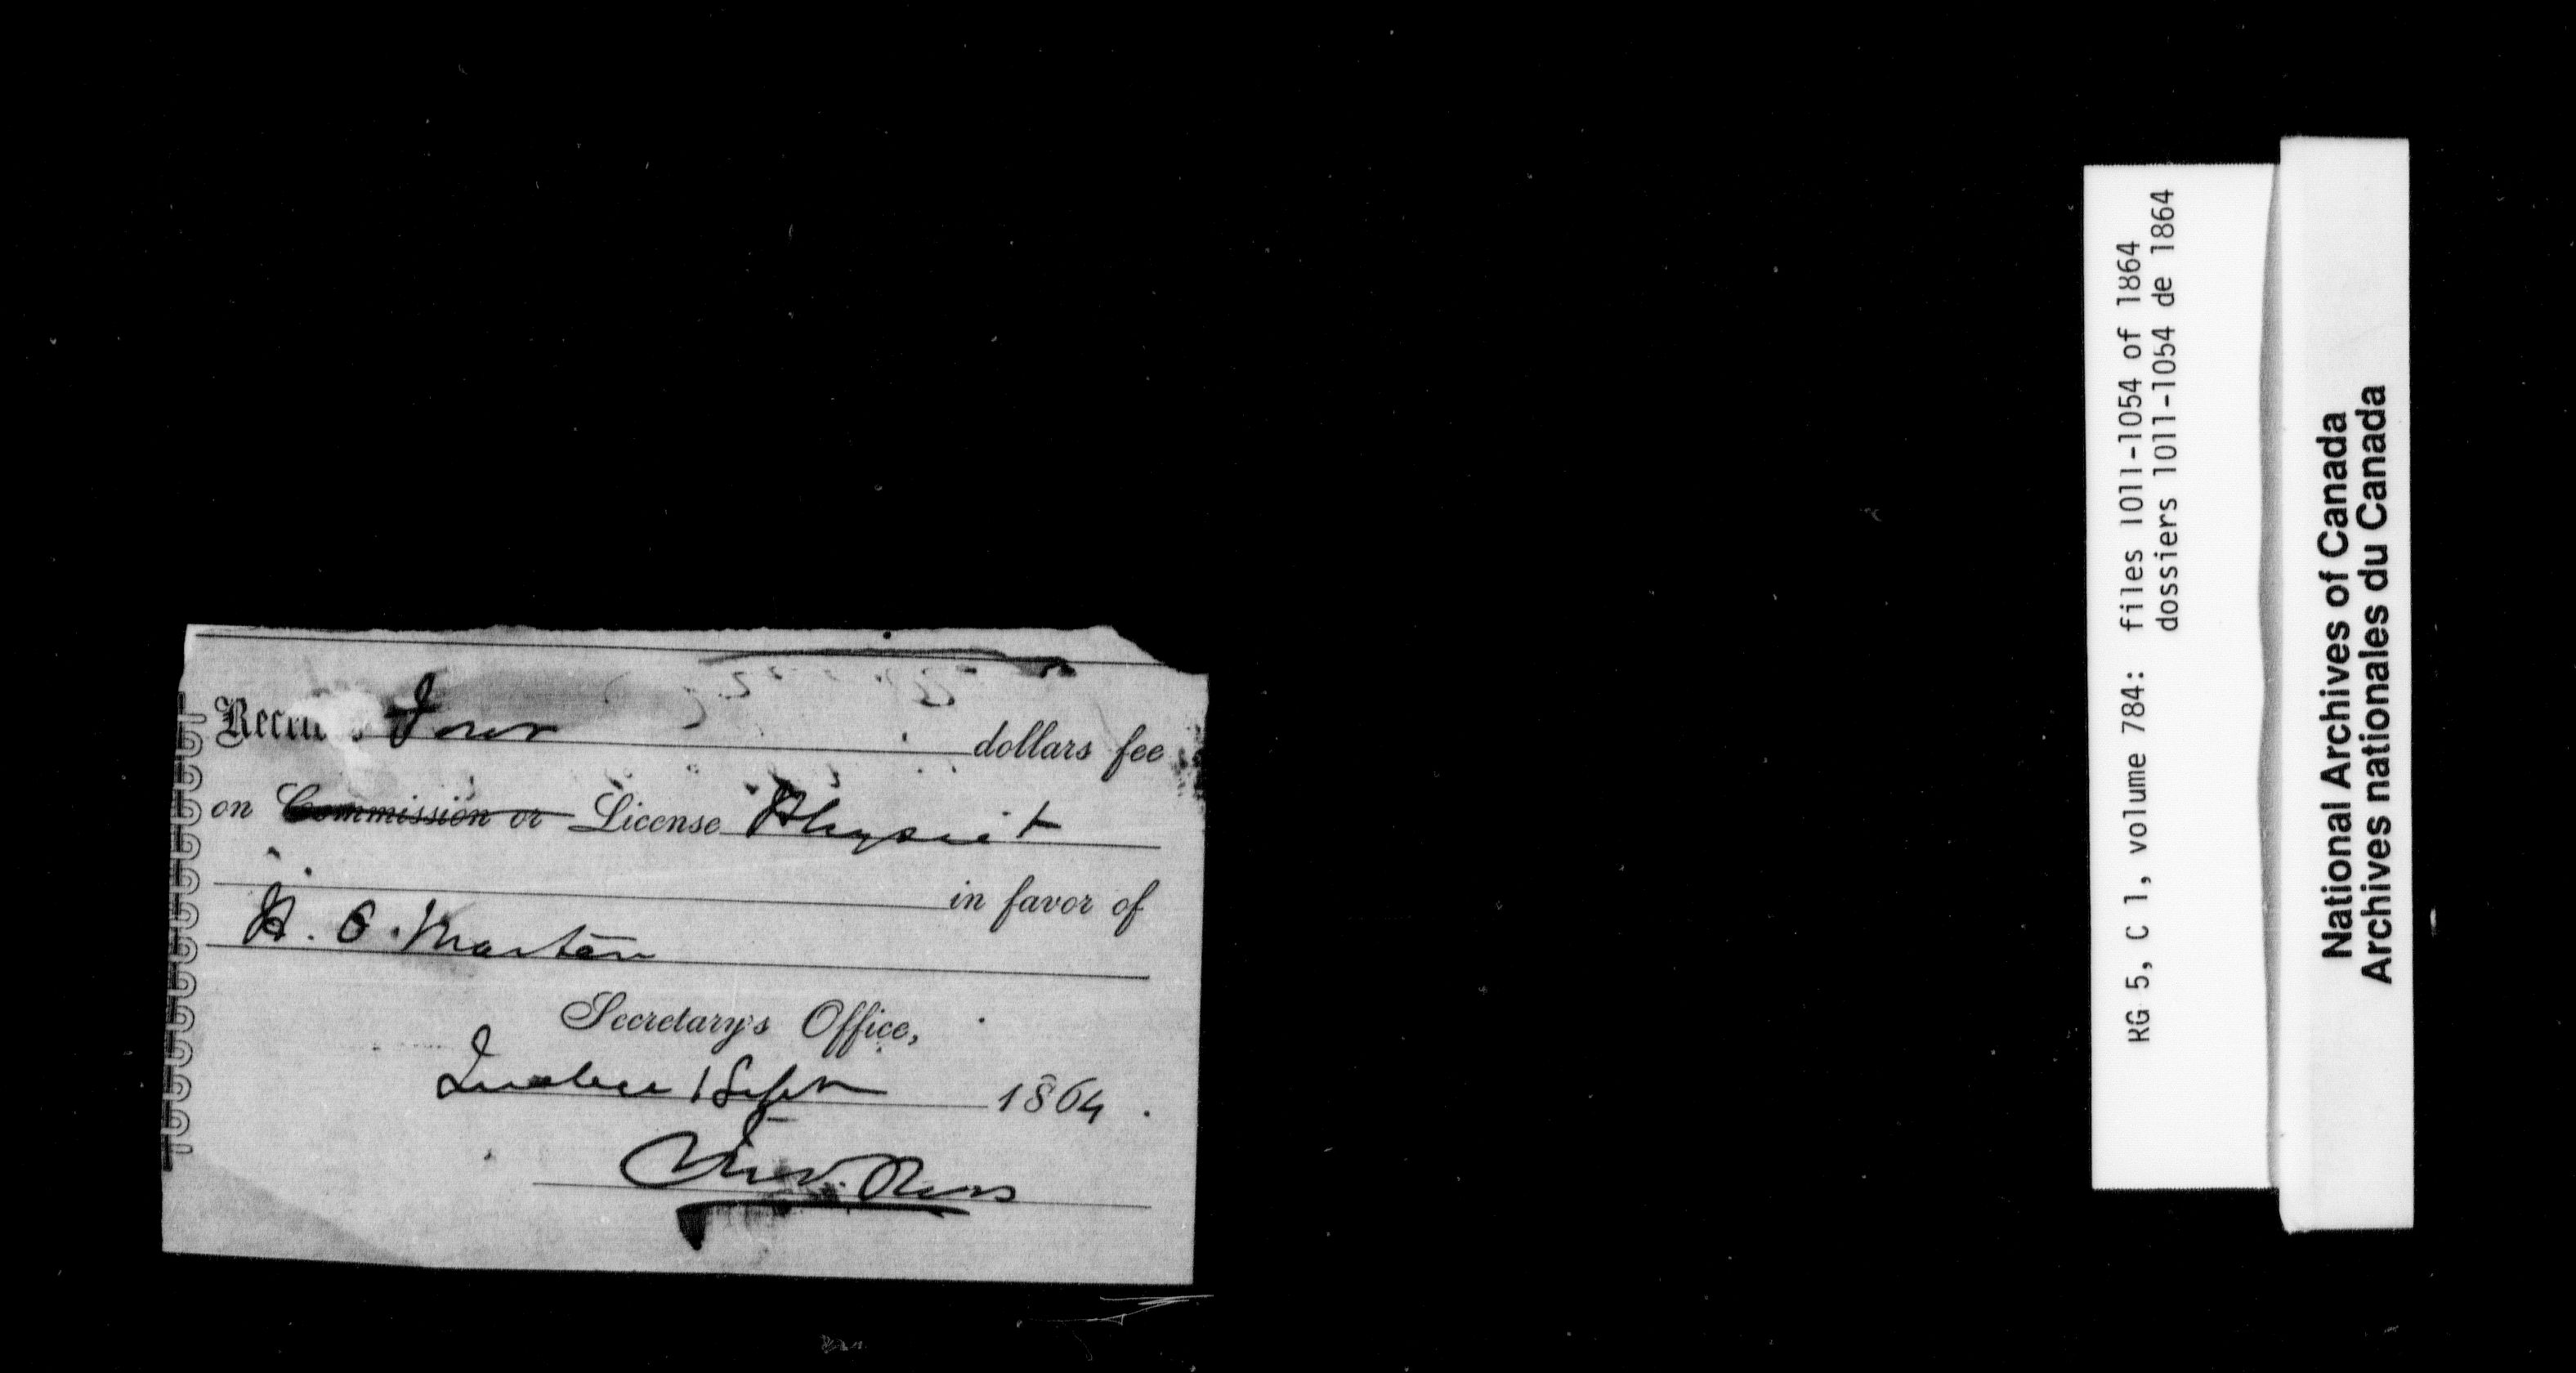 Received Four dollars fee
on Commission or License Physic't
in favor of
H. O. Martin
Secretary's Office,
Quebec 1 Sept 1864.
RG 5, C 1, volume 784: files 1011-1054 of 1864
dossiers 1011-1054 de 1864
National Archives of Canada
Archives nationales du Canada